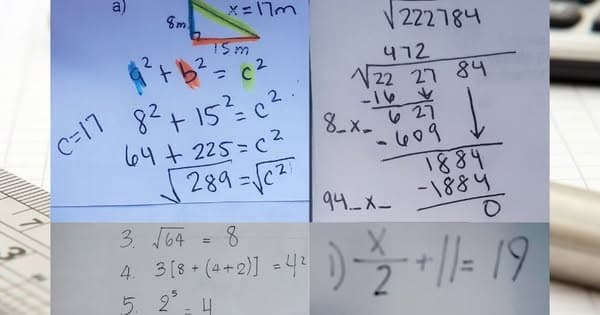 a)
8m
x = 17m
15 m
a² + b² = c²
8² + 15² = c²
c=17
64 + 225 = c²
√289 = √c²
√222784
472
√22 27 84
-16
8_x_ 6 27
- 609
1884
-1884
94_x_ 0
3. √64 = 8
4. 3[8 + (4+2)] = 4²
5. 2⁵ = 4
i) x/2 + 11 = 19